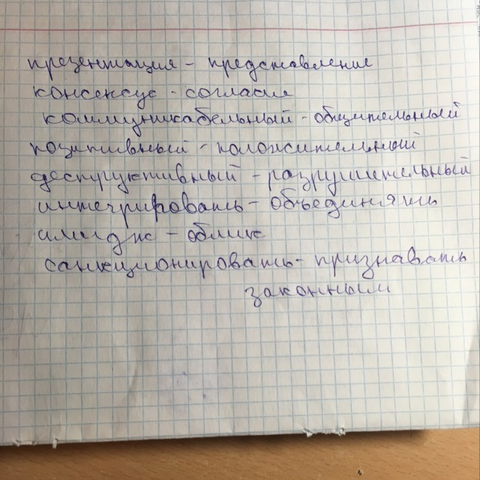 презентация - представление
консенсус - согласия
коммуникабельный - общительный
позитивный - положительный
деструктивный - разрушительный
интегрировать - объединять
имидж - облик
санкционировать - признавать
законным